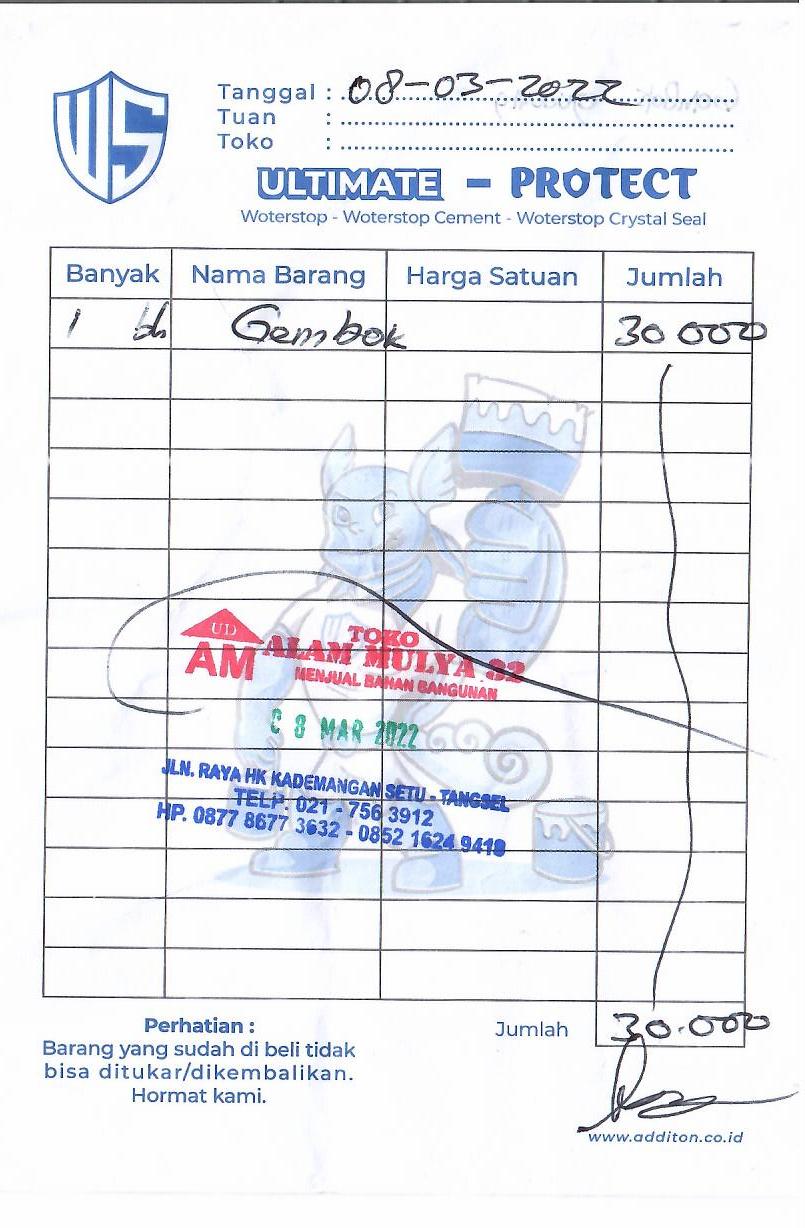 WS
Tanggal : 08-03-2022
Tuan :
Toko :
ULTIMATE - PROTECT
Woterstop - Woterstop Cement - Woterstop Crystal Seal
Banyak Nama Barang Harga Satuan Jumlah
1 bh Gembok 30 000
UD
AM
TOKO
ALAM MULYA 82
MENJUAL BAHAN BANGUNAN
08 MAR 2022
JLN. RAYA HK KADEMANGAN SETU - TANGSEL
TELP. 021 - 756 3912
HP. 0877 8677 3632 - 0852 1624 9418
Jumlah 30.000
Perhatian :
Barang yang sudah di beli tidak
bisa ditukar/dikembalikan.
Hormat kami.
www.additon.co.id